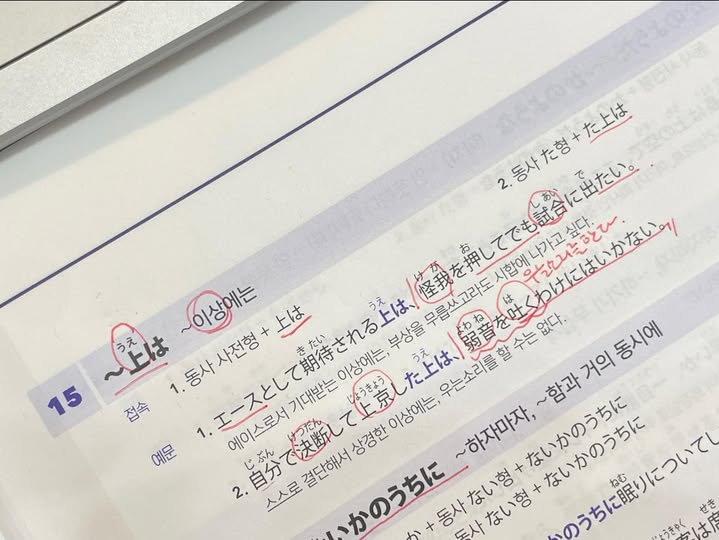 15 ~上は ~이상에는
うえ
접속 1. 동사 사전형 + 上は 2. 동사 た형 + た上は
예문 1. エースとして期待される上は、怪我を押してでも試合に出たい。
きたい うえ けが お しあい で
에이스로서 기대받는 이상에는, 부상을 무릅쓰고라도 시합에 나가고 싶다.
우는소리를 한다
2. 自分で決断して上京した上は、弱音を吐くわけにはいかない。
じぶん けつだん じょうきょう うえ よわね は
스스로 결단해서 상경한 이상에는, 우는소리를 할 수는 없다.
いかのうちに ~하자마자, ~함과 거의 동시에
か + 동사 ない형 + ないかのうちに
동사 ない형 + ないかのうちに
かのうちに眠りについてし
ねむ